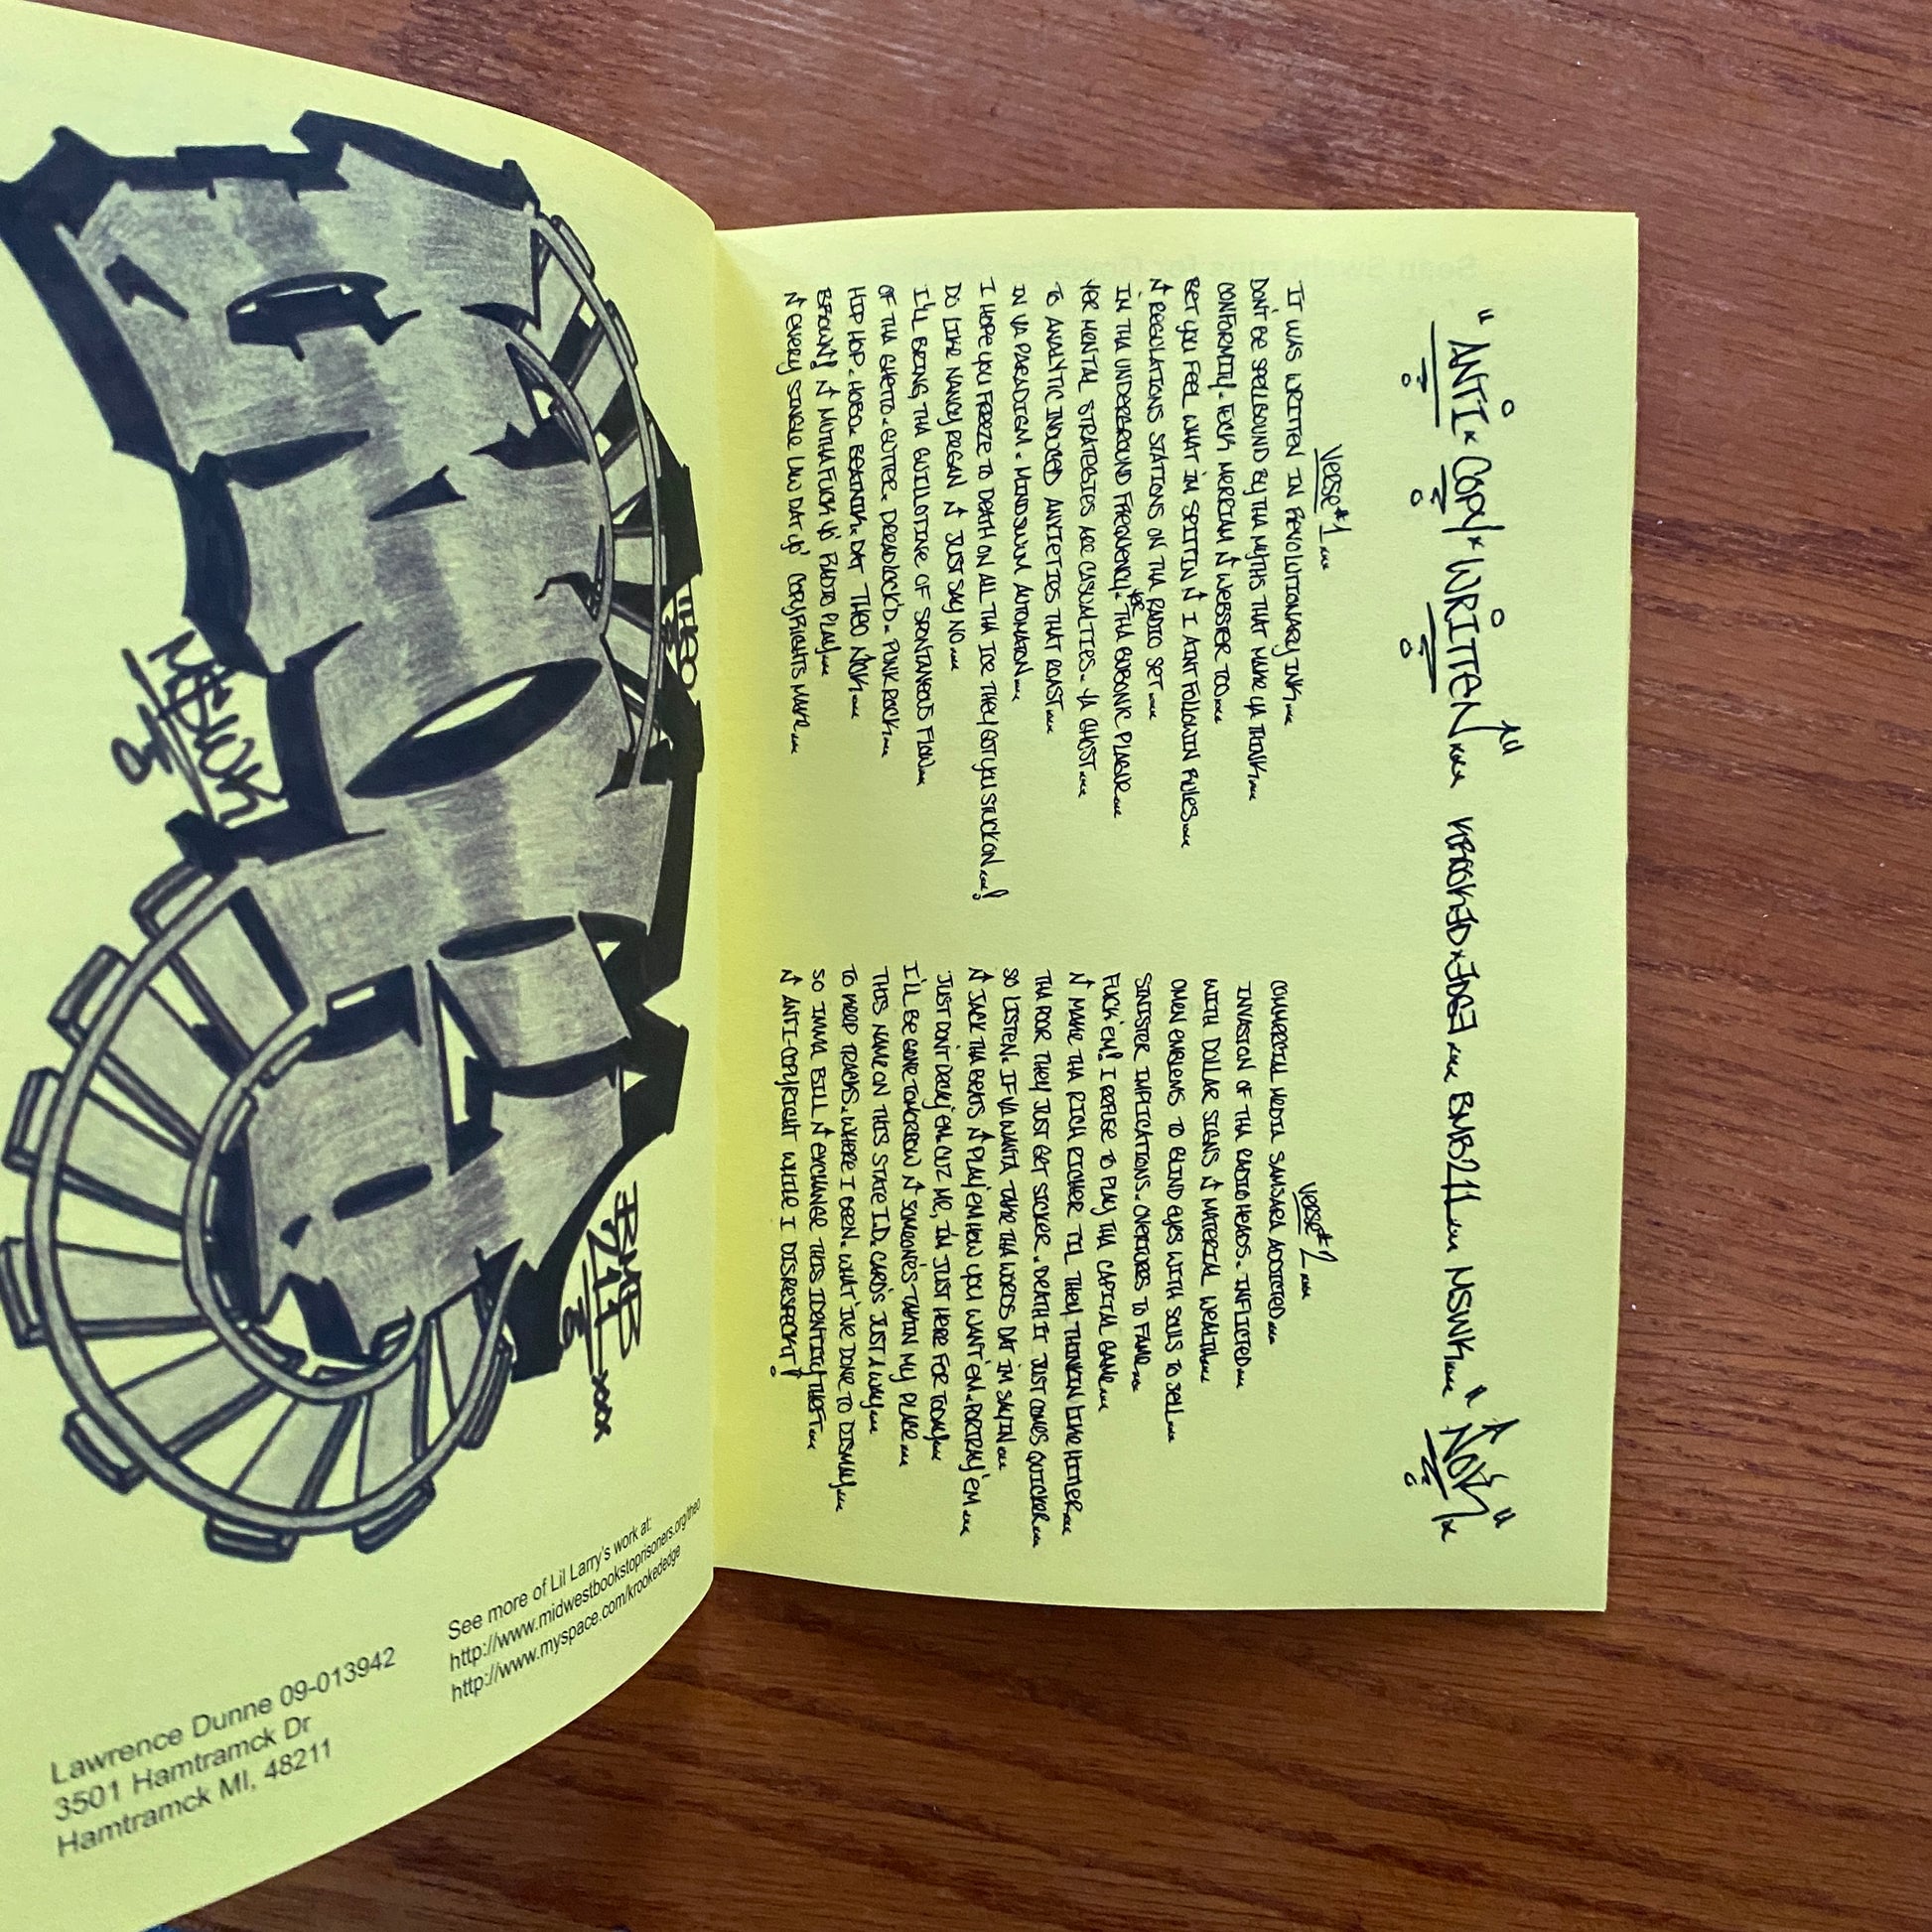 THEO
MSWK
BMB
211...xxx
See more of Lil Larry's work at:
http://www.midwestbookstoprisoners.org/theo
http://www.myspace.com/krookededge
Lawrence Dunne 09-013942
3501 Hamtramck Dr
Hamtramck MI, 48211
"ANTI×COPY×WRITTEN"... KROOKED×EDGE... BMB211... MSWK... "NOK"
VERSE #1...
IT WAS WRITTEN IN REVOLUTIONARY INK...
DON'T BE SPELLBOUND BY THA MYTHS THAT MAKE YA THINK...
CONFORMITY. FUCK MERRIAM N WEBSTER TOO...
BET YOU FEEL WHAT IM SPITIN N I AINT FOLLOWIN RULES...
N REGULATIONS STATIONS ON THA RADIO SET...
IN THA UNDERGROUND FREQUENCY. YER THA BUBONIC PLAGUE...
YER MENTAL STRATEGIES ARE CASUALTIES. YA GHOST...
TO ANALYTIC INDUCED ANXIETIES THAT ROAST...
IN YA PARADIGM. MINDSWUM AUTOMATON...
I HOPE YOU FREEZE TO DEATH ON ALL THA ICE THEY GOT YOU STUCK ON...!
DO LIKE NANCY REGAN N JUST SAY NO...
I'LL BRING THA GUILLOTINE OF SPONTANEOUS FLOW...
OF THA GHETTO. GUTTER. DREADLOCK'D. PUNK ROCK...
HIP HOP. HOBO. BEATNIK. DAT THEO NOK...
BROWN! N MUTHAFUCK YO' RADIO PLAY...
N EVERY SINGLE LAW DAT YO' COPYRIGHTS MAKE...
VERSE #2...
COMMERCIAL MEDIA SAMSARA ADDICTED...
INVASION OF THA RADIO HEADS. INFLICTED...
WITH DOLLAR SIGNS N MATERIAL WEALTH...
OMEN EMBLEMS TO BLIND EYES WITH SOULS TO SELL...
SINISTER IMPLICATIONS. OVERTURES TO FAME...
FUCK 'EM! I REFUSE TO PLAY THA CAPITAL GAME...
N MAKE THA RICH RICHER TIL THEY THINKIN LIKE HITLER...
THA POOR THEY JUST GET SICKER. DEATH IT JUST COMES QUICKER...
SO LISTEN. IF YA WANTA TAKE THA WORDS DAT IM SAYIN...
N JACK THA BEATS N PLAY 'EM HOW YOU WANT 'EM. PORTRAY 'EM...
JUST DON'T DECAY 'EM CUZ ME, I'M JUST HERE FOR TODAY...
I'LL BE GONE TOMORROW N SOMEONE'S TAKIN MY PLACE...
THIS NAME ON THIS STATE I.D. CARD'S JUST A WAY...
TO KEEP TRACKS. WHERE I BEEN. WHAT I'VE DONE TO DISMAY...
SO IMMA BILL N EXCHANGE THIS IDENTITY THEFT...
N ANTI-COPYRIGHT WHILE I DISRESPECKT!